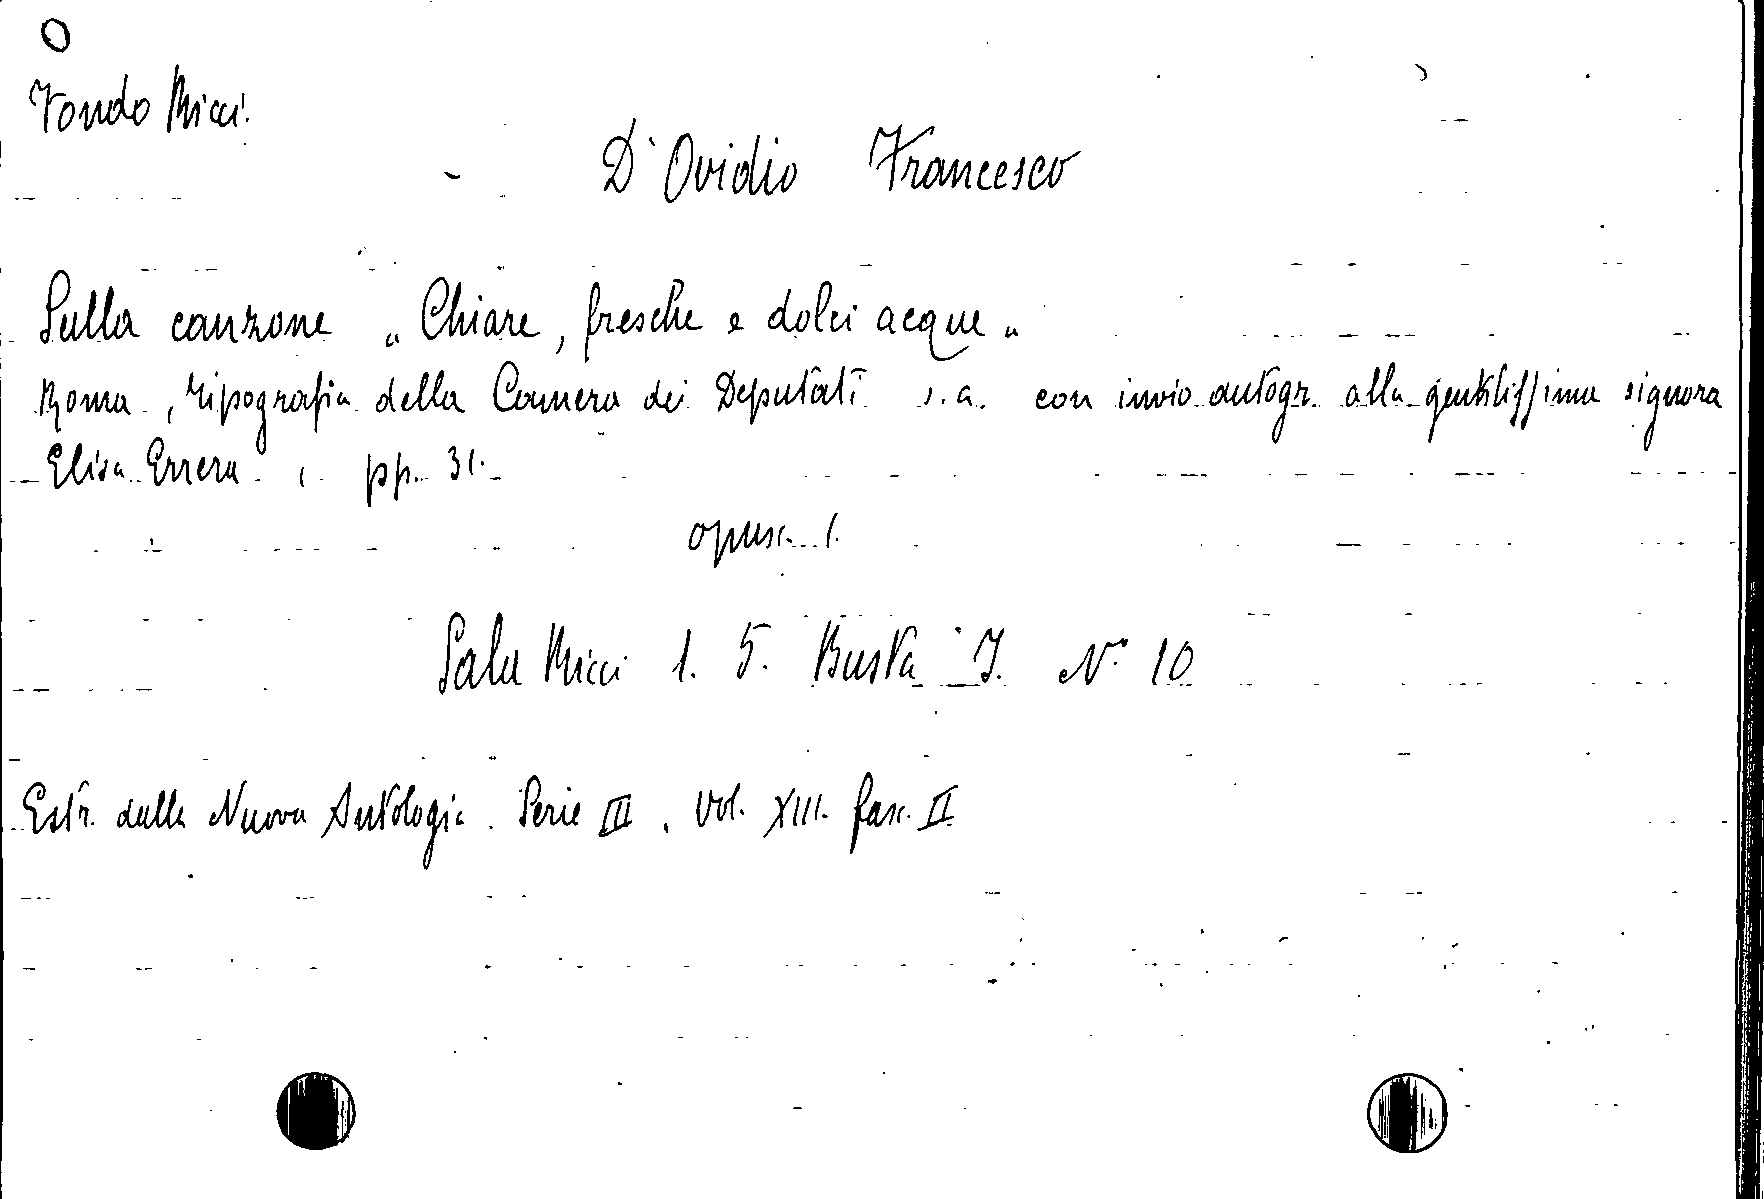 O
Fondo Ricci.
D'Ovidio Francesco
Sulla canzone „ Chiare, fresche e dolci acque „
Roma, tipografia della Camera dei Deputati s.a. con invio autogr. alla gentilissima signora
Elisa Errera, pp. 31.
opusc. 1.
Sala Ricci 1. 5. Busta I. N° 10
Estr. dalla Nuova Antologia. Serie III, Vol. XIII. fasc. II